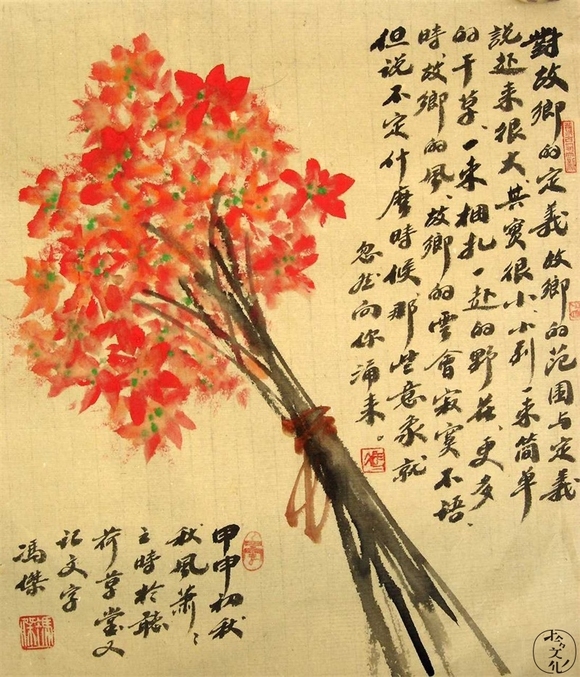 對故鄉的定義故鄉的范围与定義
説起来很大.其實很小.小到一束简单
的干草、一束捆扎一起的野花.更多
時.故鄉的風、故鄉的雪會寂寞不語.
但说不定什麽時候那些意象就
忽然向你涌来。
甲申初秋
秋風萧〻
之時於聽
荷草堂又
记文字
馮傑